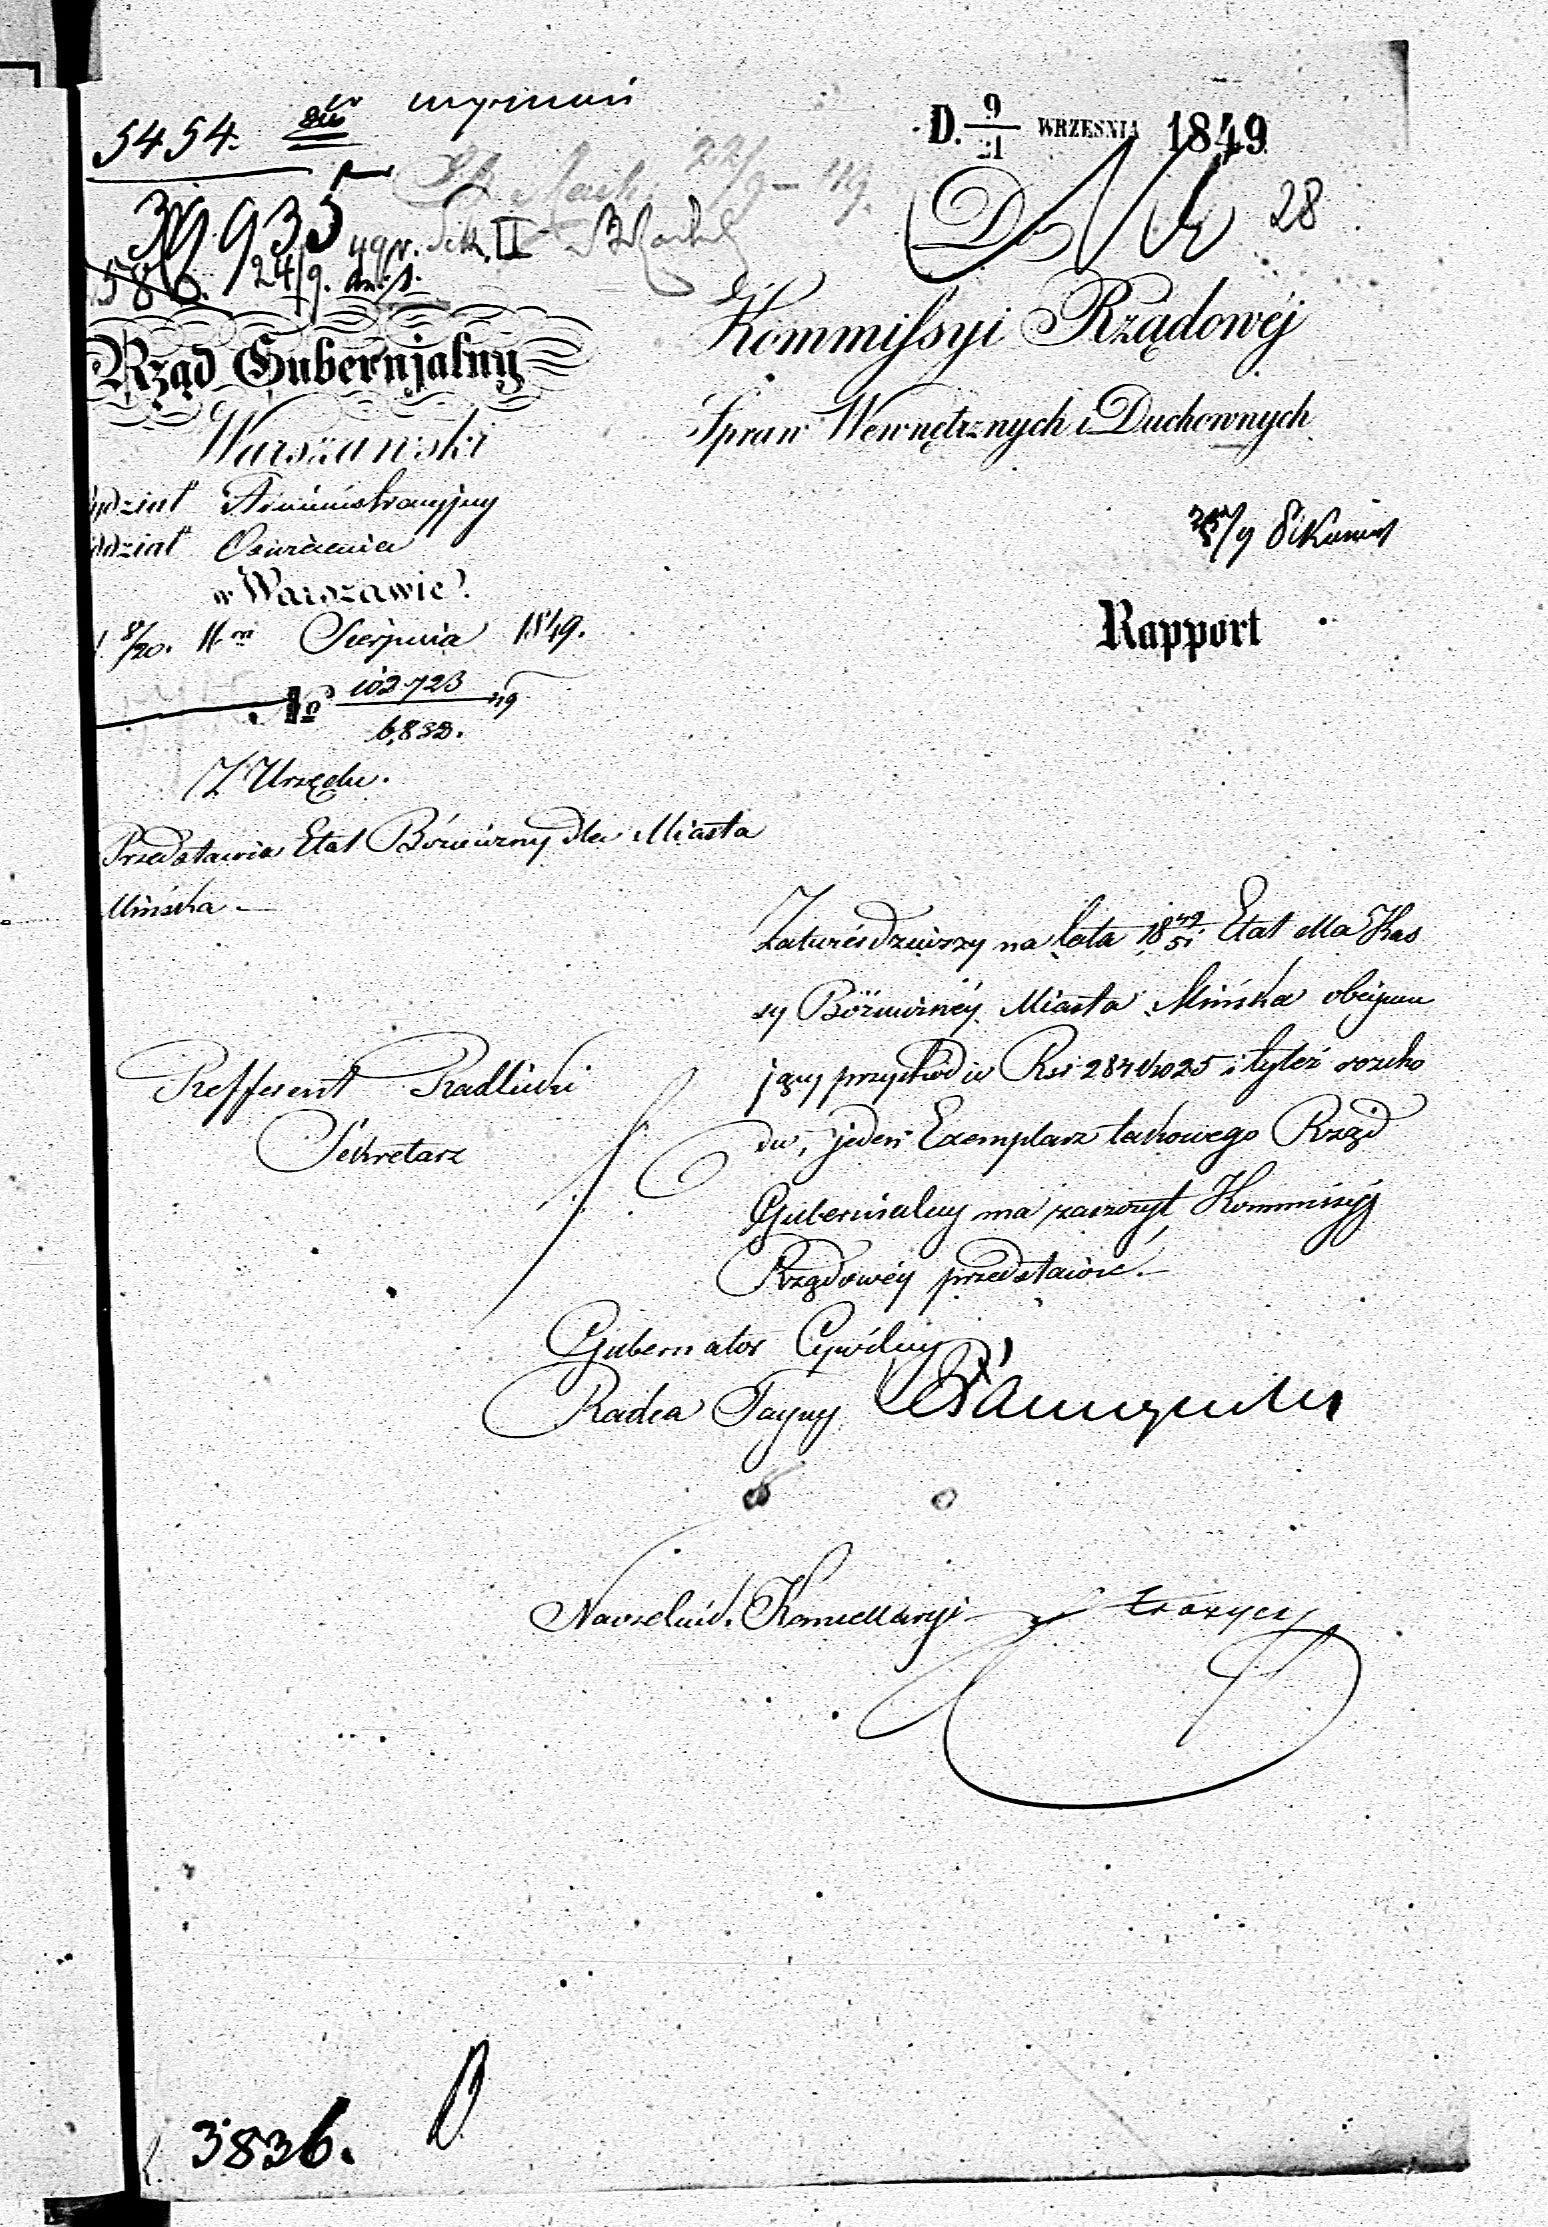 5454.
39935
586. 24/9.
D. 9/21 WRZESNIA 1849
28
Rząd Gubernjalny
Warszawski
ydział Administracyjny
ddział
w Warszawie.
8/20. Sierpnia 1849.
No 102723
6,832.
Z Urzędu.
Przedstawia Etat Bóżniczny dla Miasta
Mińska.
Do
Kommissyi Rządowéj
Spraw Wewnętrznych i Duchownych
Rapport
Zatwierdziwszy na lata 18 49/51 Etat dla Kas
sy Bóżniczney Miasta Mińska obeymu
jący przychodu Rsr 287 k 25 i tyleż rozcho
du, jeden Exemplarz takowego Rząd
Gubernialny ma zaszczyt Kommissyi
Rządowéy przedstawić.
Refferent Radliński
Sekretarz
Gubernator Cywilny
Radca Tayny
Naczelnik Kancellaryi
3836.